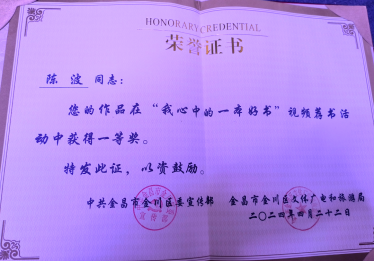 HONORARY CREDENTIAL
荣誉证书
陈波 同志：
您的作品在“我心中的一本好书”视频荐书活
动中获得一等奖。
特发此证，以资鼓励。
中共金昌市金川区委宣传部 金昌市金川区文体广电和旅游局
二〇二四年四月二十二日